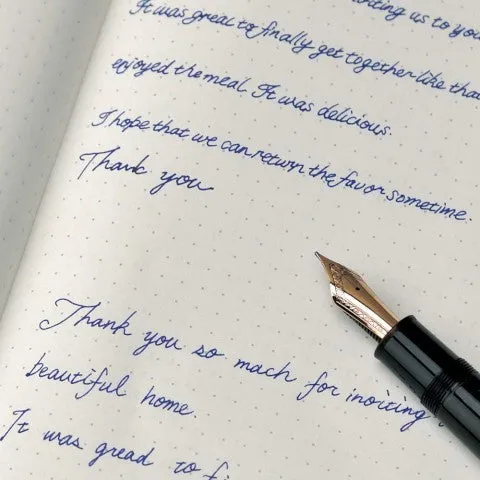 inviting us to your
It was great to finally get together like that
enjoyed the meal. It was delicious.
I hope that we can return the favor sometime.
Thank you
Thank you so mach for inoiting
beautiful home.
It was gread to fi